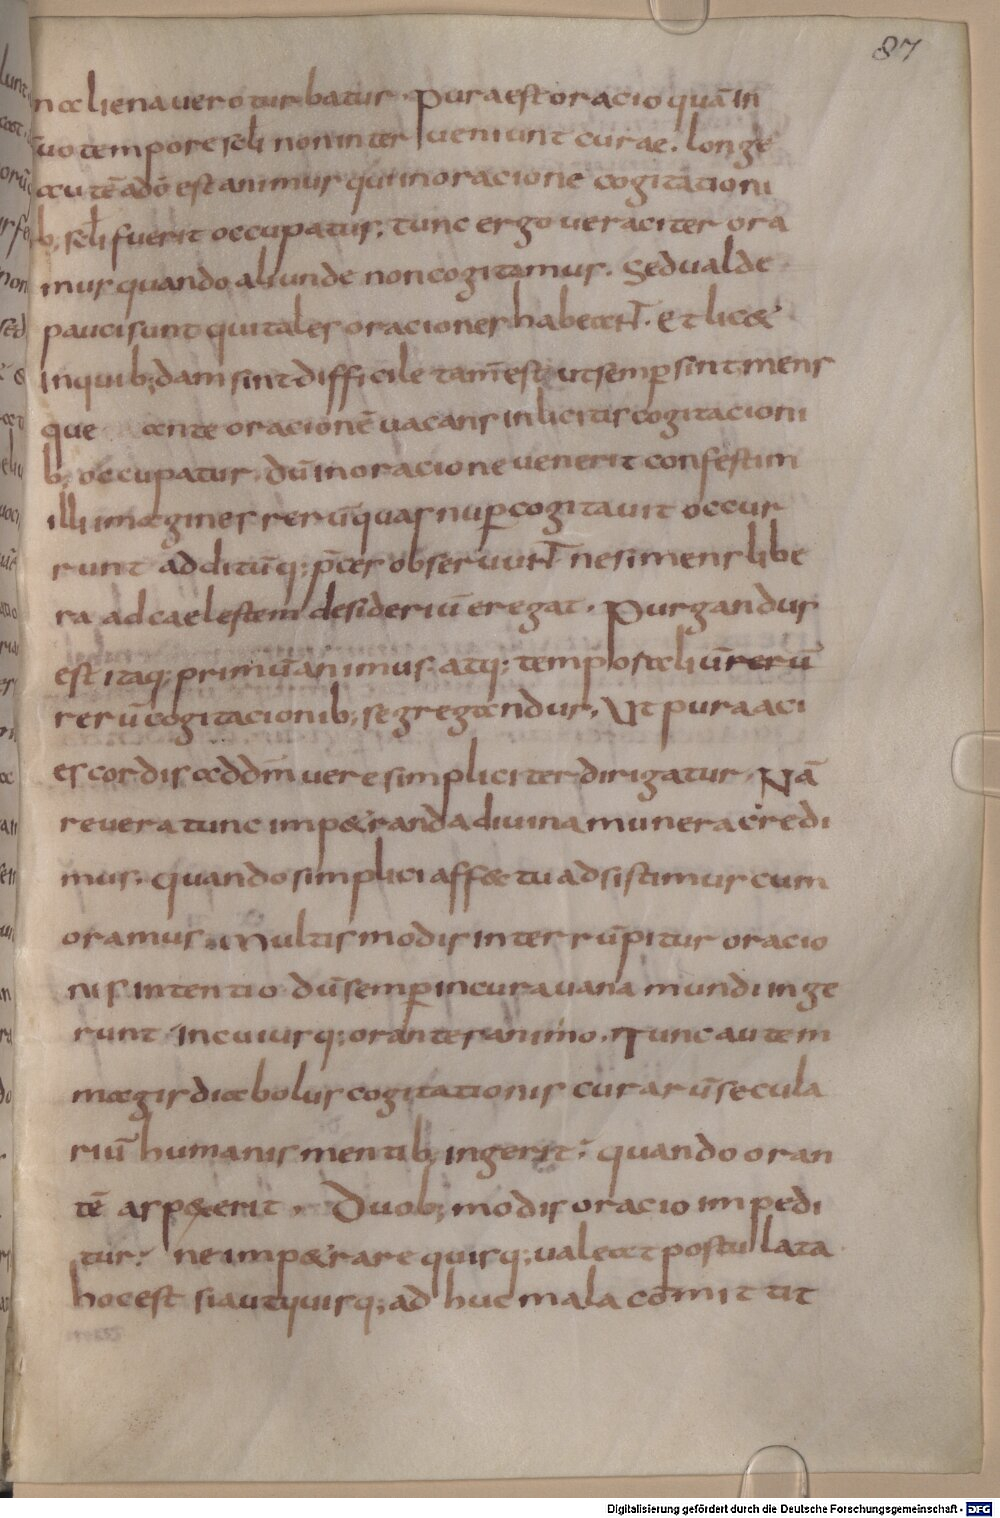 87
n aliena uero turbatur. Pura est oracio quā in
suo tempore scli non inter ueniunt curae. longe
autē a dō est animus qui in oracione cogitationi
b; scli fuerit occupatus; tunc ergo ueraciter ora
mus quando aliunde non cogitamus. Sed ualde
pauci sunt qui tales oraciones habeant. et lic&
in quib;dam sint difficile tam̄ est ut semp̄ sint mens
que ante oracionē uacans inlicitis cogitacioni
b; occupatur. dū in oracione uenerit confestim
illi imagines rerū quas nup̄ cogitauit occur
runt additūq; p̄ces obseruunt ne si mens libe
ra ad caelestem desideriū eregat. Purgandus
est itaq; primū animus atq; tempostaliū rerū
rerū cogitacionib; segregandus. Ut pura aci
es cordis ad dm̄ uere simpliciter dirigatur. Nā
reuera tunc imp&randa diuina munera credi
mus. quando simplici affectu adsistimus cum
oramus. Multis modis interrūpitur oracio
nis intentio dū semp̄ in cura uana mundi inge
runt in cuiusq; orantes animo. Tunc autem
magis diabolus cogitationis curarū secula
riū humanis mentib; ingerit. quando oran
tē asp&erit. Duob; modis oracio impedi
tur. ne imp&rare quisq; ualeat postulata
hoc est si aut quisq; ad huc mala cōmittit
Digitalisierung gefördert durch die Deutsche Forschungsgemeinschaft - DFG